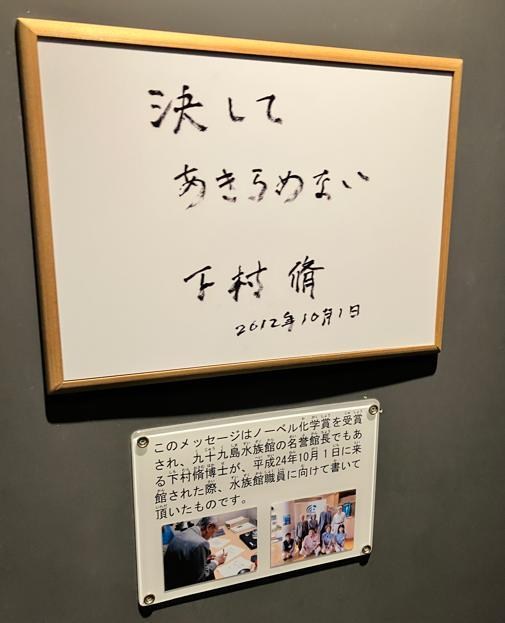 決して
あきらめない
下村 脩
2012年10月1日
このメッセージはノーベル化学賞を受賞
され、九十九島水族館の名誉館長でもあ
る下村脩博士が、平成24年10月1日に来
館された際、水族館職員に向けて書いて
頂いたものです。